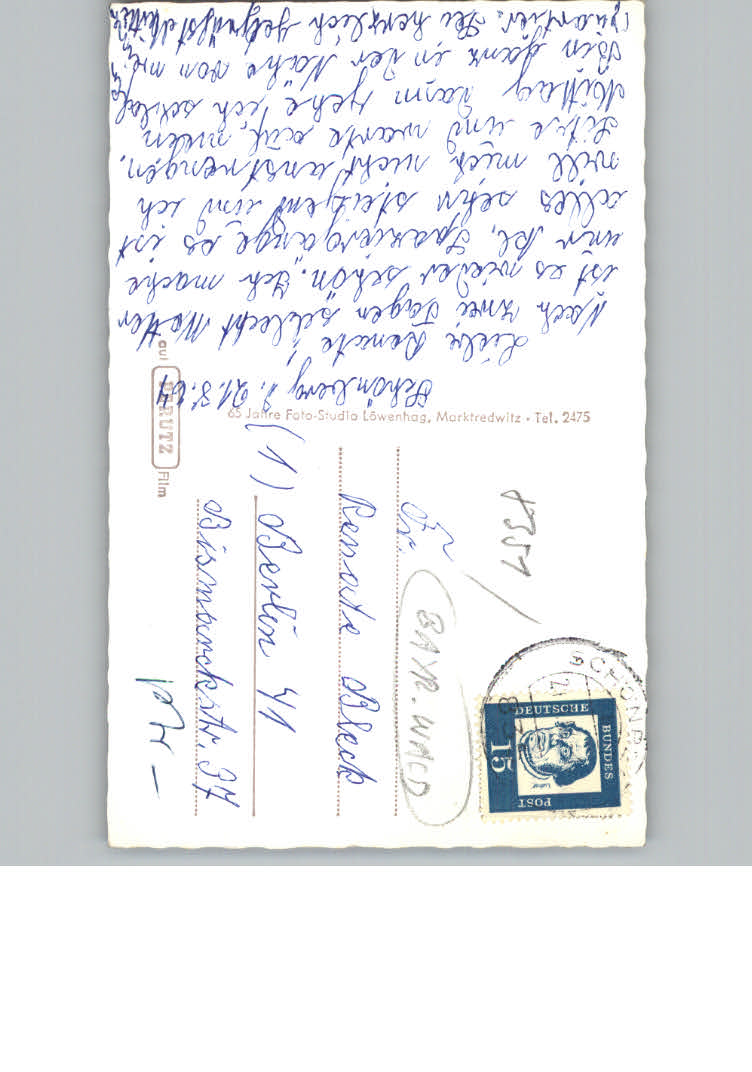 Schönberg, d. 21.8.64
Liebe Renate!
Nach zwei Tagen schlecht Wetter
ist es wieder schön. Ich mache
nur kl. Spaziergänge, es ist
alles sehr steigend und ich
will mich nicht anstrengen.
Sitze und warte auf mein
Mittag dann gehe ich schlaf
Bin ganz in der Nähe von mein
Quartier. Sei herzlich gegrüßt
65 Jahre Foto-Studio Löwenhag, Marktredwitz · Tel. 2475
auf PERUTZ Film
Fr.
Renate Bleck
(1) Berlin 41
Bismarckstr. 37
8351
BAYR. WALD
SCHÖNB
DEUTSCHE
BUNDES
POST
15
Luther